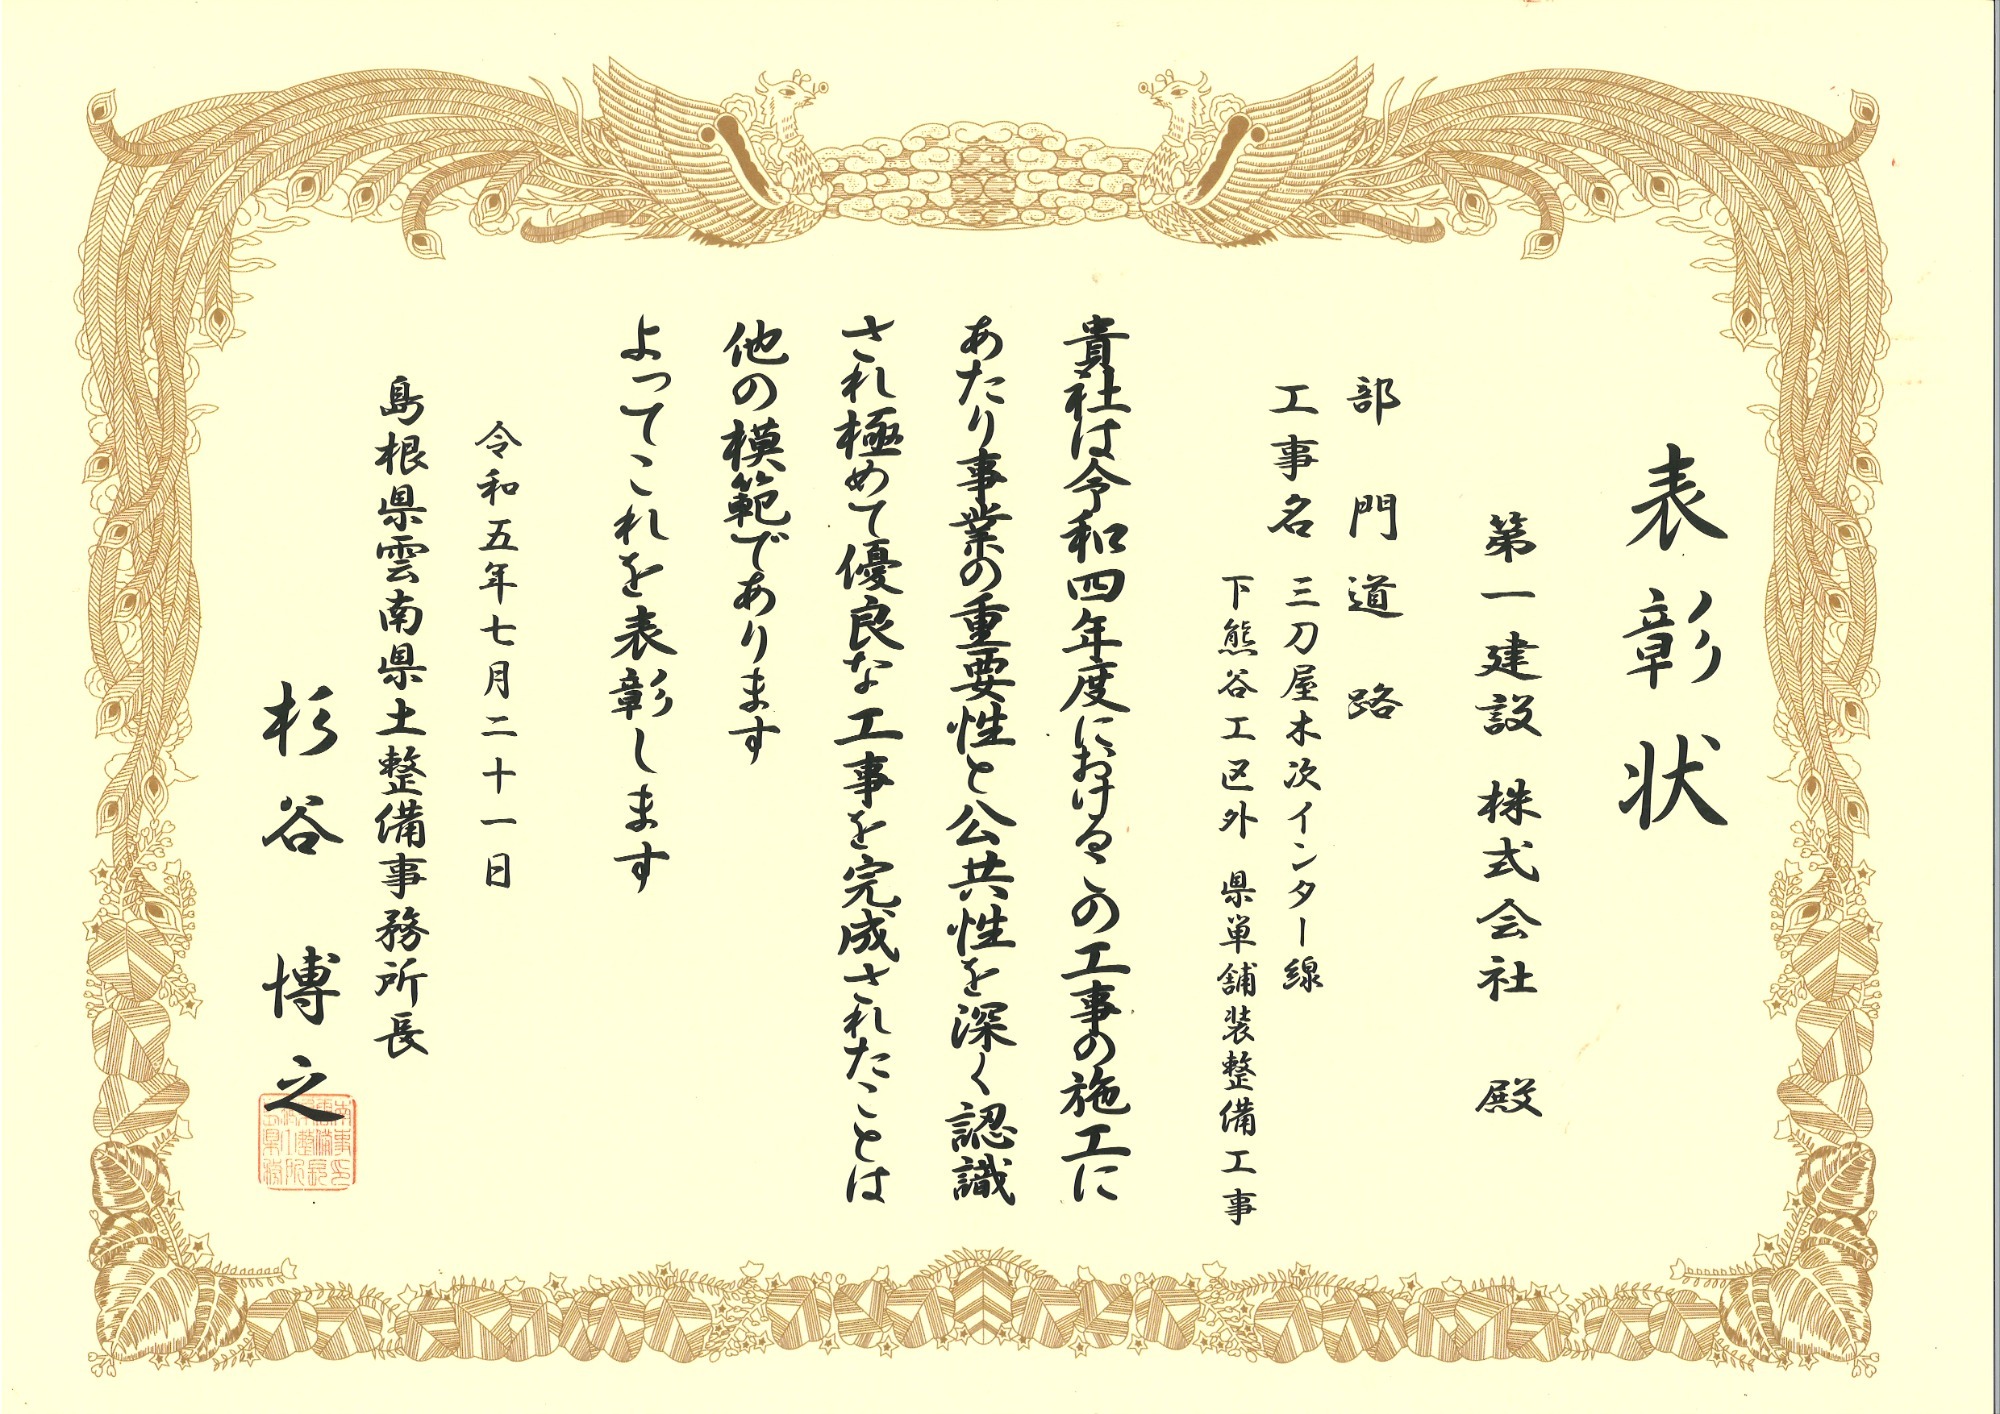 表彰状
第一建設 株式会社 殿
部門 道路
工事名 三刀屋木次インター線
下熊谷工区外 県単舗装整備工事
貴社は令和四年度におけるこの工事の施工に
あたり事業の重要性と公共性を深く認識
され極めて優良な工事を完成されたことは
他の模範であります
よってこれを表彰します
令和五年七月二十一日
島根県雲南県土整備事務所長
杉谷 博之